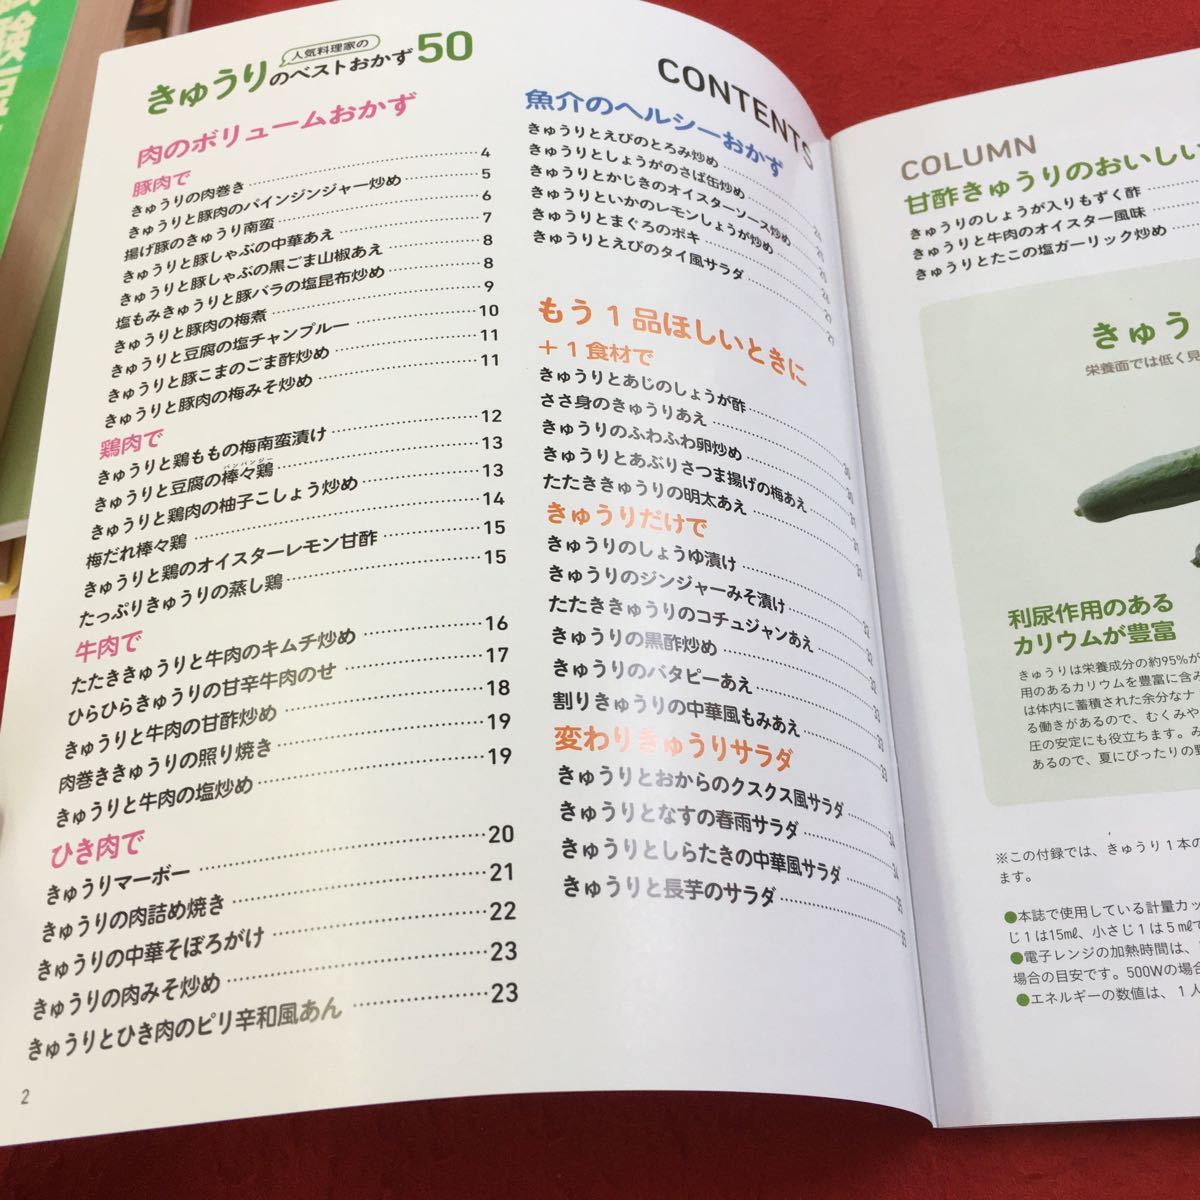 人気料理家の
きゅうりのベストおかず50
CONTENTS
肉のボリュームおかず
豚肉で
きゅうりの肉巻き 4
きゅうりと豚肉のパインジンジャー炒め 5
揚げ豚のきゅうり南蛮 6
きゅうりと豚しゃぶの中華あえ 7
きゅうりと豚しゃぶの黒ごま山椒あえ 8
塩もみきゅうりと豚バラの塩昆布炒め 8
きゅうりと豚肉の梅煮 9
きゅうりと豆腐の塩チャンプルー 10
きゅうりと豚こまのごま酢炒め 11
きゅうりと豚肉の梅みそ炒め 11
鶏肉で
きゅうりと鶏ももの梅南蛮漬け 12
きゅうりと豆腐の棒々鶏 13
バンバンジー
きゅうりと鶏肉の柚子こしょう炒め 13
梅だれ棒々鶏 14
きゅうりと鶏のオイスターレモン甘酢 15
たっぷりきゅうりの蒸し鶏 15
牛肉で
たたききゅうりと牛肉のキムチ炒め 16
ひらひらきゅうりの甘辛牛肉のせ 17
きゅうりと牛肉の甘酢炒め 18
肉巻ききゅうりの照り焼き 19
きゅうりと牛肉の塩炒め 19
ひき肉で
きゅうりマーボー 20
きゅうりの肉詰め焼き 21
きゅうりの中華そぼろがけ 22
きゅうりの肉みそ炒め 23
きゅうりとひき肉のピリ辛和風あん 23
2
魚介のヘルシーおかず
きゅうりとえびのとろみ炒め
きゅうりとしょうがのさば缶炒め
きゅうりとかじきのオイスターソース炒め
きゅうりといかのレモンしょうが炒め
きゅうりとまぐろのポキ
きゅうりとえびのタイ風サラダ
もう1品ほしいときに
+1食材で
きゅうりとあじのしょうが酢
ささ身のきゅうりあえ
きゅうりのふわふわ卵炒め
きゅうりとあぶりさつま揚げの梅あえ
たたききゅうりの明太あえ
きゅうりだけで
きゅうりのしょうゆ漬け
きゅうりのジンジャーみそ漬け
たたききゅうりのコチュジャンあえ
きゅうりの黒酢炒め
きゅうりのバタピーあえ
割りきゅうりの中華風もみあえ
変わりきゅうりサラダ
きゅうりとおからのクスクス風サラダ 34
きゅうりとなすの春雨サラダ 34
きゅうりとしらたきの中華風サラダ 35
きゅうりと長芋のサラダ 35
COLUMN
甘酢きゅうりのおいしい
きゅうりのしょうが入りもずく酢
きゅうりと牛肉のオイスター風味
きゅうりとたこの塩ガーリック炒め
きゅう
栄養面では低く見
利尿作用のある
カリウムが豊富
きゅうりは栄養成分の約95%が
用のあるカリウムを豊富に含み
は体内に蓄積された余分なナ
る働きがあるので、むくみや
圧の安定にも役立ちます。み
あるので、夏にぴったりの野
※この付録では、きゅうり1本の
ます。
●本誌で使用している計量カッ
じ1は15㎖、小さじ1は5㎖で
●電子レンジの加熱時間は、
場合の目安です。500Wの場合
●エネルギーの数値は、1人